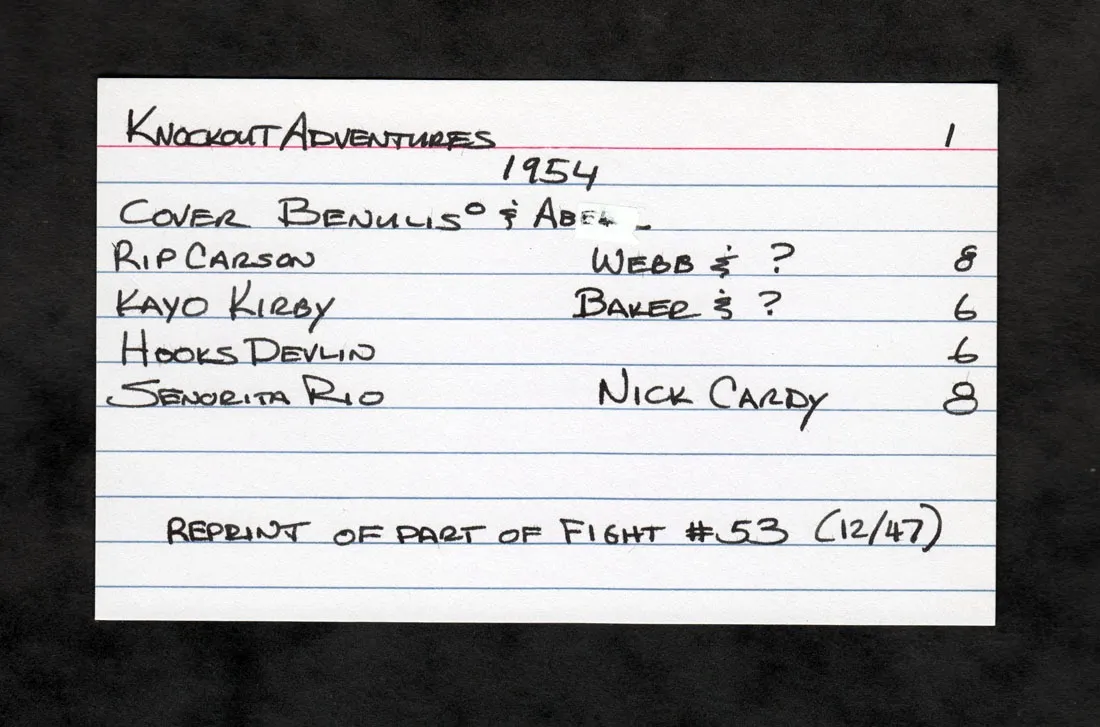 KNOCKOUT ADVENTURES 1
1954
COVER BENULIS° & ABEL
RIP CARSON WEBB & ? 8
KAYO KIRBY BAKER & ? 6
HOOKS DEVLIN 6
SENORITA RIO NICK CARDY 8
REPRINT OF PART OF FIGHT #53 (12/47)